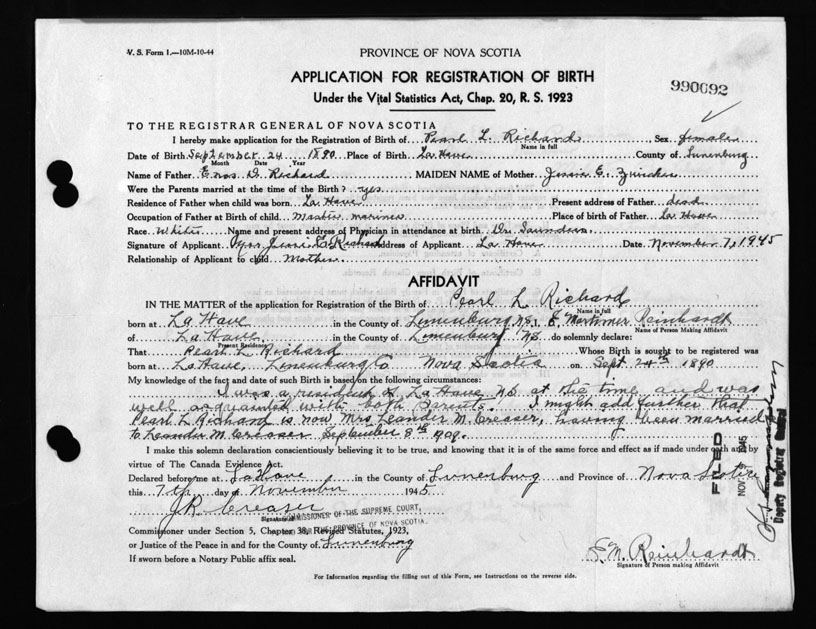 V. S. Form 1.—10M-10-44
PROVINCE OF NOVA SCOTIA
APPLICATION FOR REGISTRATION OF BIRTH
990692
Under the Vital Statistics Act, Chap. 20, R. S. 1923
TO THE REGISTRAR GENERAL OF NOVA SCOTIA
I hereby make application for the Registration of Birth of Pearl L. Richard Sex female
Name in full
Date of Birth September 24 1890 Place of Birth La Have County of Lunenburg
Month Date Year
Name of Father Enos D. Richard MAIDEN NAME of Mother Jessie E.
Were the Parents married at the time of the Birth? yes
Residence of Father when child was born La Have Present address of Father dead
Occupation of Father at Birth of child Master mariner Place of birth of Father La Have
Race White Name and present address of Physician in attendance at birth Dr. Saunders
Signature of Applicant Jessie Richard Address of Applicant La Have Date November 7, 1945
Relationship of Applicant to child Mother.
AFFIDAVIT
IN THE MATTER of the application for Registration of the Birth of Pearl L Richard
Name in full
born at La Have in the County of Lunenburg N.S. I, E. Mortimer Reinhardt
Name of Person Making Affidavit
of La Have in the County of Lunenburg NS do solemnly declare:
Present Residence
That Pearl L Richard Whose Birth is sought to be registered was
born at La Have, Lunenburg Co. Nova Scotia on Sept 24th 1890
My knowledge of the fact and date of such Birth is based on the following circumstances:
I was a resident of La Have NS at the time and was
well acquainted with both Parents. I might add further that
Pearl L Richard is now Mrs Leander M. Creaser, having been married
to Leander M. Creaser September 8th 1909.
I make this solemn declaration conscientiously believing it to be true, and knowing that it is of the same force and effect as if made under oath and by
virtue of The Canada Evidence Act.
Declared before me at La Have in the County of Lunenburg and Province of Nova Scotia
this 7th day of November 1945
J R Creaser
Signature
COMMISSIONER OF THE SUPREME COURT,
FOR THE PROVINCE OF NOVA SCOTIA.
Commissioner under Section 5, Chapter 38, Revised Statutes, 1923,
or Justice of the Peace in and for the County of Lunenburg
If sworn before a Notary Public affix seal.
E. M. Reinhardt
Signature of Person making Affidavit
For Information regarding the filling out of this Form, see Instructions on the reverse side.
FILED
NOV 1945
Deputy Registrar General